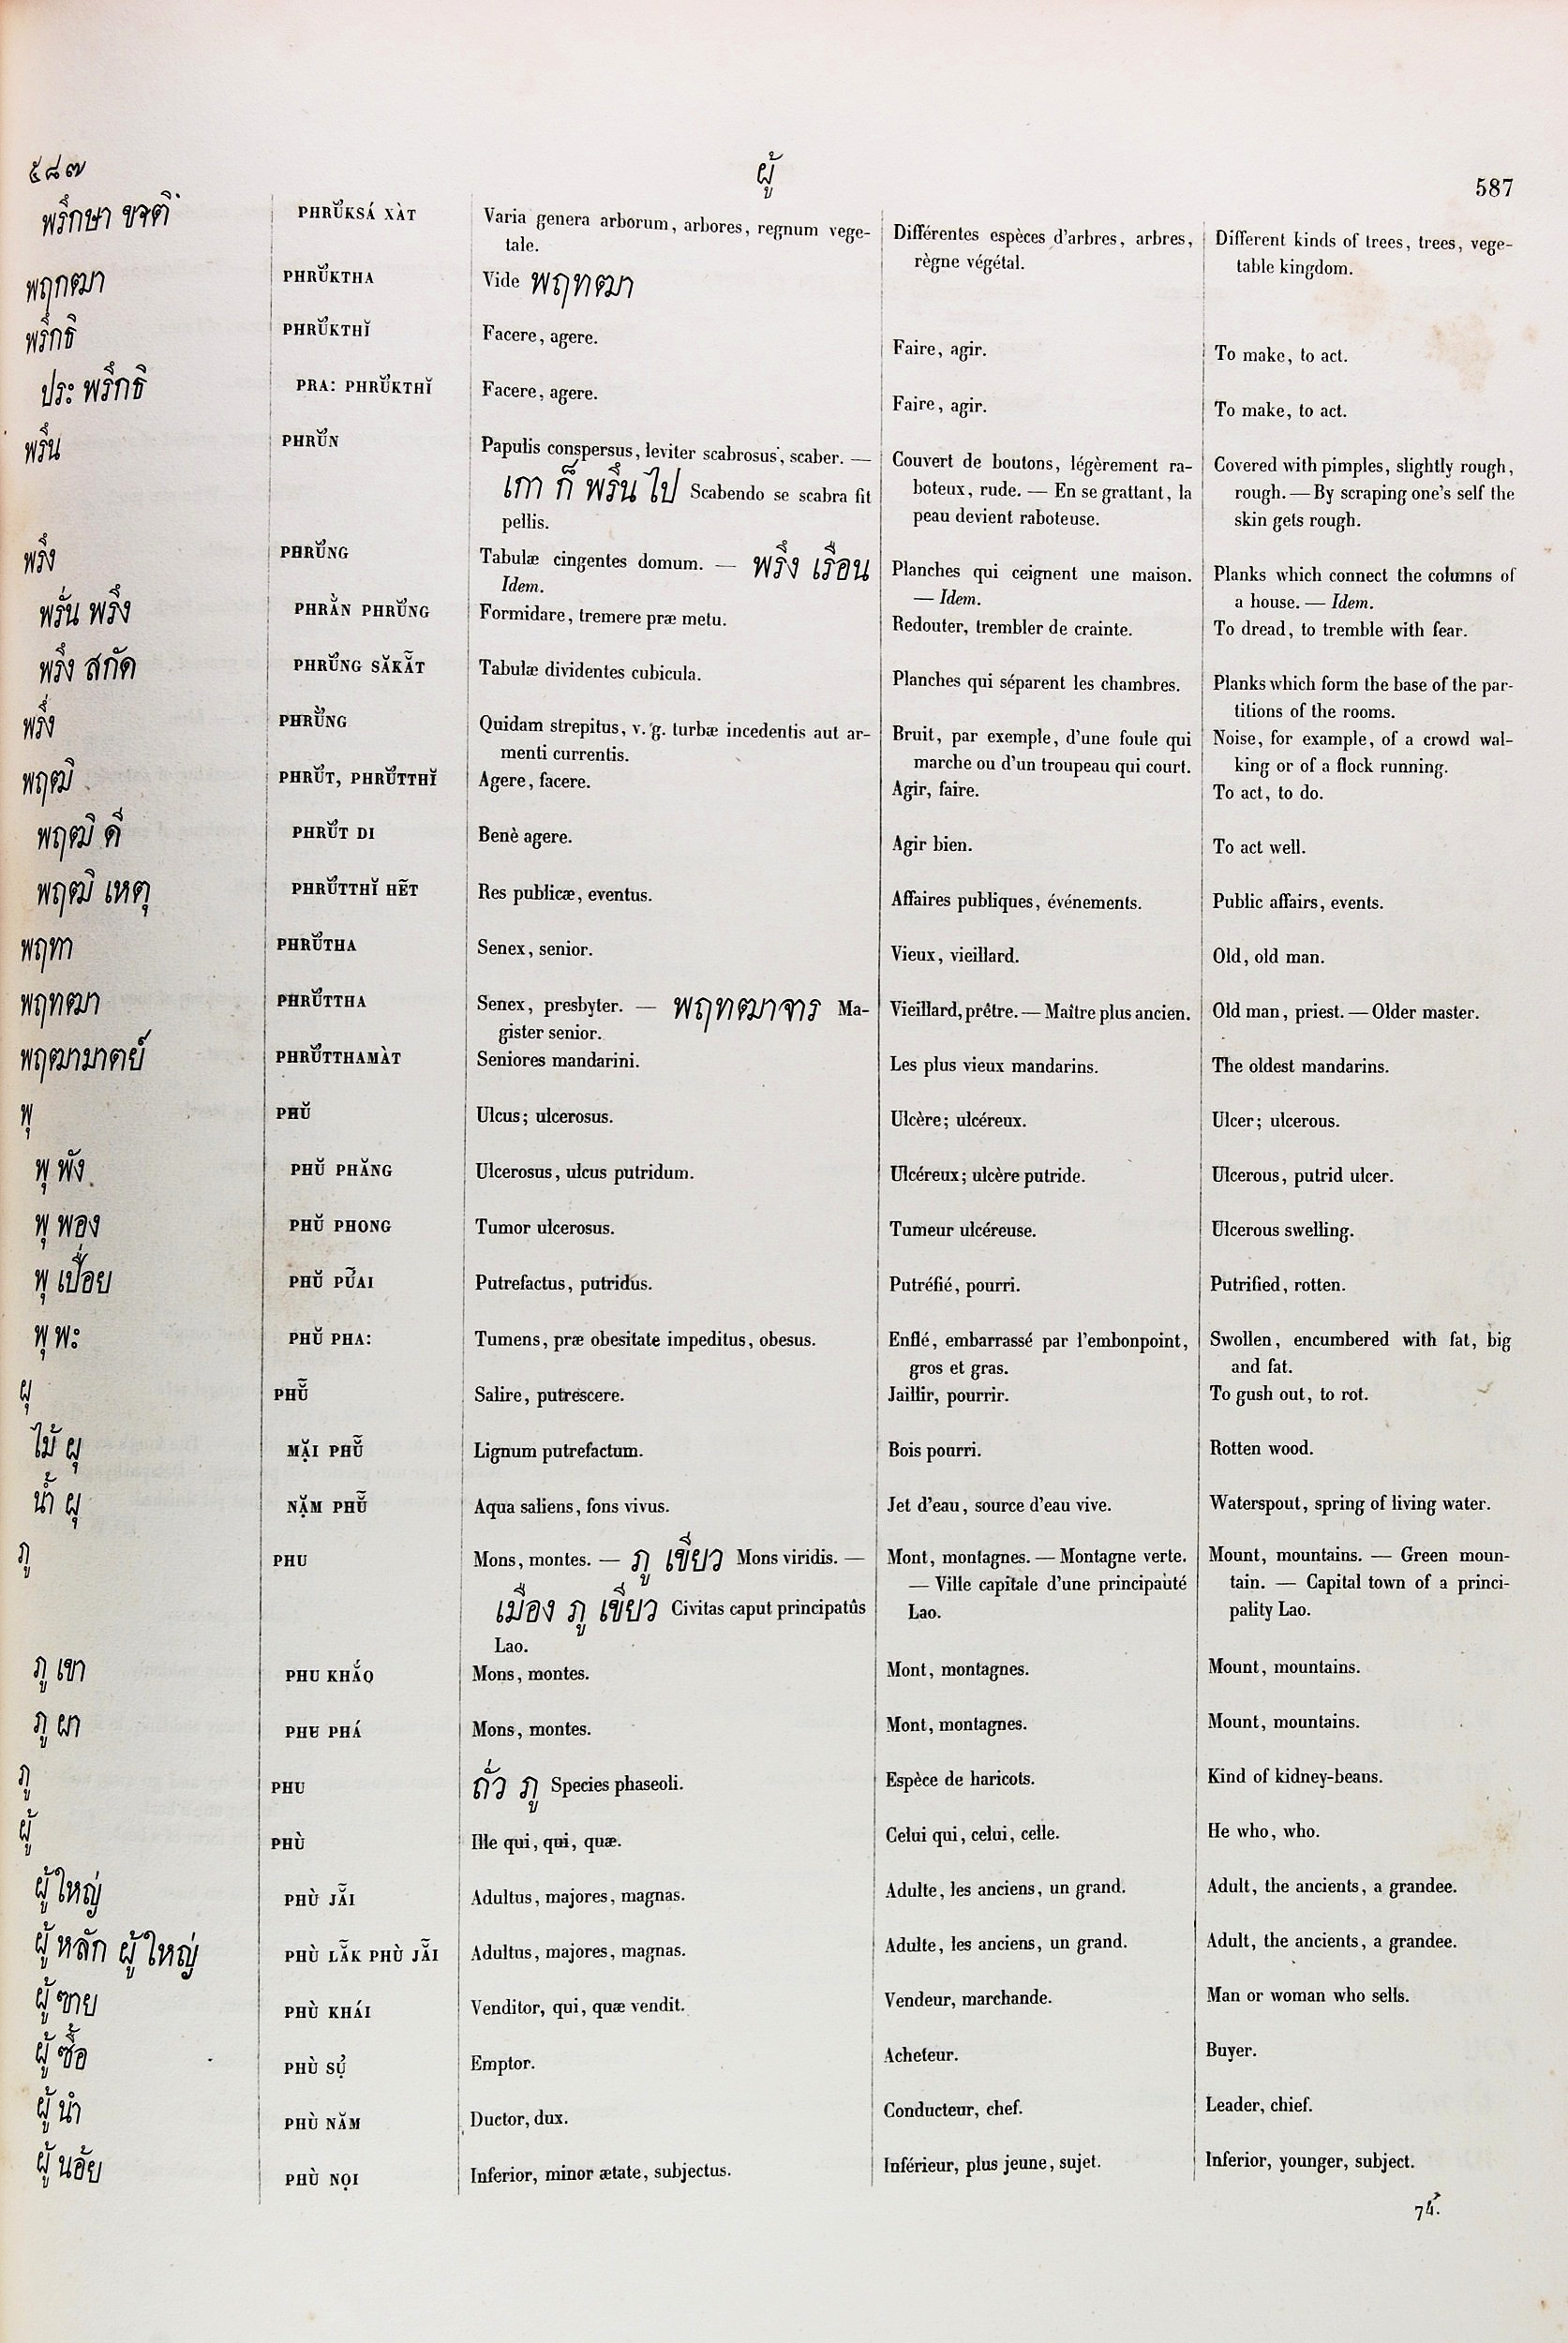 ๕๘๗ ผู้ 587
พรึกษา ชาติ PHRŬKSÁ XÀT Varia genera arborum, arbores, regnum vege- Différentes espèces d'arbres, arbres, Different kinds of trees, trees, vege-
tale. règne végétal. table kingdom.
พฤกฒา PHRŬKTHA Vide พฤทฒา
พรึกธิ PHRŬKTHĬ Facere, agere. Faire, agir. To make, to act.
ประ พรึกธิ PRA: PHRŬKTHĬ Facere, agere. Faire, agir. To make, to act.
พรึน PHRŬN Papulis conspersus, leviter scabrosus, scaber. — Couvert de boutons, légèrement ra- Covered with pimples, slightly rough,
เกา ก็ พรึน ไป Scabendo se scabra fit boteux, rude. — En se grattant, la rough. — By scraping one's self the
pellis. peau devient raboteuse. skin gets rough.
พรึง PHRŬNG Tabulæ cingentes domum. — พรึง เรือน Planches qui ceignent une maison. Planks which connect the columns of
Idem. — Idem. a house. — Idem.
พรั่น พรึง PHRĂN PHRŬNG Formidare, tremere præ metu. Redouter, trembler de crainte. To dread, to tremble with fear.
พรึง สกัด PHRŬNG SĂKĂT Tabulæ dividentes cubicula. Planches qui séparent les chambres. Planks which form the base of the par-
titions of the rooms.
พรึ่ง PHRŬNG Quidam strepitus, v. g. turbæ incedentis aut ar- Bruit, par exemple, d'une foule qui Noise, for example, of a crowd wal-
menti currentis. marche ou d'un troupeau qui court. king or of a flock running.
พฤฒิ PHRŬT, PHRŬTTHĬ Agere, facere. Agir, faire. To act, to do.
พฤฒิ ดี PHRŬT DI Benè agere. Agir bien. To act well.
พฤฒิ เหตุ PHRŬTTHĬ HẼT Res publicæ, eventus. Affaires publiques, événements. Public affairs, events.
พฤทา PHRŬTHA Senex, senior. Vieux, vieillard. Old, old man.
พฤทฒา PHRŬTTHA Senex, presbyter. — พฤทฒาจาร Ma- Vieillard, prêtre. — Maître plus ancien. Old man, priest. — Older master.
gister senior.
พฤฒามาตย์ PHRŬTTHAMÀT Seniores mandarini. Les plus vieux mandarins. The oldest mandarins.
พุ PHŬ Ulcus; ulcerosus. Ulcère; ulcéreux. Ulcer; ulcerous.
พุ พัง PHŬ PHĂNG Ulcerosus, ulcus putridum. Ulcéreux; ulcère putride. Ulcerous, putrid ulcer.
พุ พอง PHŬ PHONG Tumor ulcerosus. Tumeur ulcéreuse. Ulcerous swelling.
พุ เปื่อย PHŬ PŬAI Putrefactus, putridus. Putréfié, pourri. Putrified, rotten.
พุ พะ PHŬ PHA: Tumens, præ obesitate impeditus, obesus. Enflé, embarrassé par l'embonpoint, Swollen, encumbered with fat, big
gros et gras. and fat.
ผุ PHŬ̃ Salire, putrescere. Jaillir, pourrir. To gush out, to rot.
ไม้ ผุ MẶI PHŬ̃ Lignum putrefactum. Bois pourri. Rotten wood.
น้ำ ผุ NẶM PHŬ̃ Aqua saliens, fons vivus. Jet d'eau, source d'eau vive. Waterspout, spring of living water.
ภู PHU Mons, montes. — ภู เขียว Mons viridis. — Mont, montagnes. — Montagne verte. Mount, mountains. — Green moun-
เมือง ภู เขียว Civitas caput principatûs — Ville capitale d'une principauté tain. — Capital town of a princi-
Lao. Lao. pality Lao.
ภู เขา PHU KHẮO̩ Mons, montes. Mont, montagnes. Mount, mountains.
ภู ผา PHU PHÁ Mons, montes. Mont, montagnes. Mount, mountains.
ภู PHU ถั่ว ภู Species phaseoli. Espèce de haricots. Kind of kidney-beans.
ผู้ PHÙ Ille qui, qui, quæ. Celui qui, celui, celle. He who, who.
ผู้ ใหญ่ PHÙ JẴI Adultus, majores, magnas. Adulte, les anciens, un grand. Adult, the ancients, a grandee.
ผู้ หลัก ผู้ ใหญ่ PHÙ LẴK PHÙ JẴI Adultus, majores, magnas. Adulte, les anciens, un grand. Adult, the ancients, a grandee.
ผู้ ขาย PHÙ KHÁI Venditor, qui, quæ vendit. Vendeur, marchande. Man or woman who sells.
ผู้ ซื้อ PHÙ SỤ̉ Emptor. Acheteur. Buyer.
ผู้ นำ PHÙ NĂM Ductor, dux. Conducteur, chef. Leader, chief.
ผู้ น้อย PHÙ NỌI Inferior, minor ætate, subjectus. Inférieur, plus jeune, sujet. Inferior, younger, subject.
74.